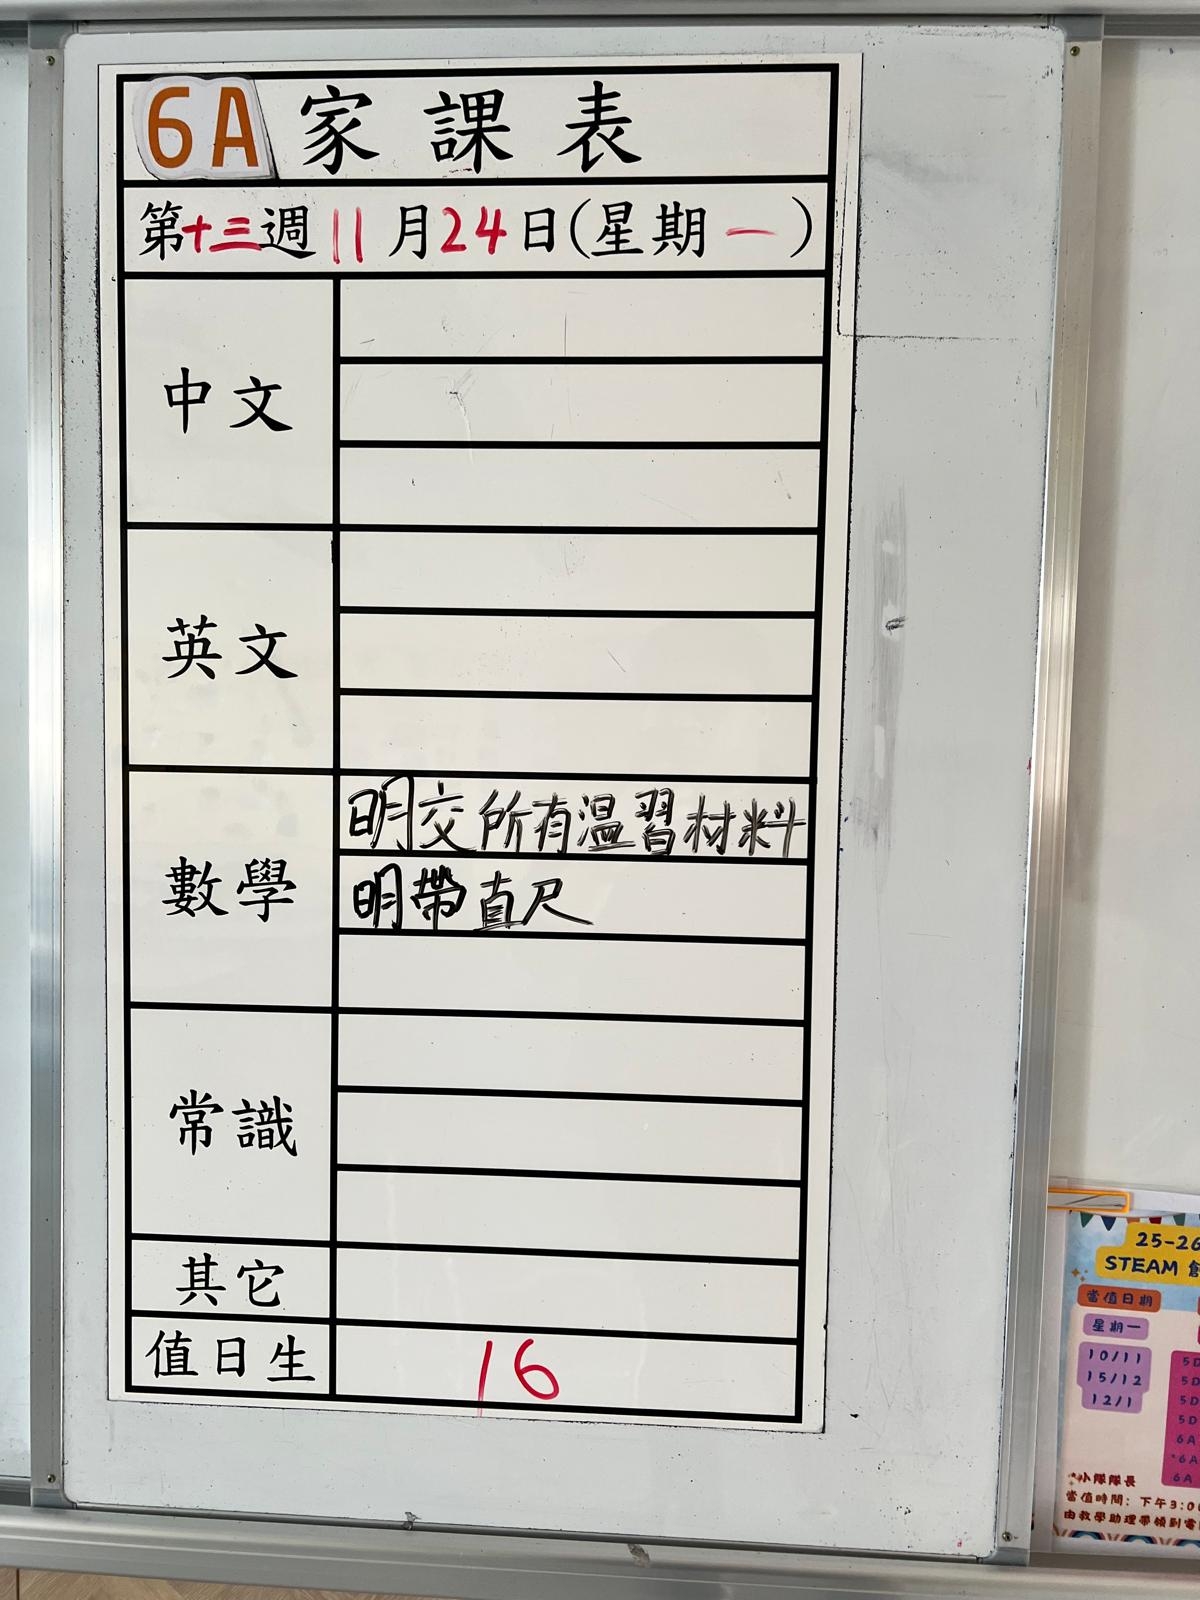 6A 家課表
第十三週 11月24日(星期一)
中文
英文
數學
明交所有溫習材料
明帶直尺
常識
其它
值日生 16
25-26
STEAM 創
當值日期
星期一
10/11
15/12
12/1
5D
5D
5D
5D
6A
*6A
6A
*小隊隊長
當值時間：下午3:0
由教學助理帶領到